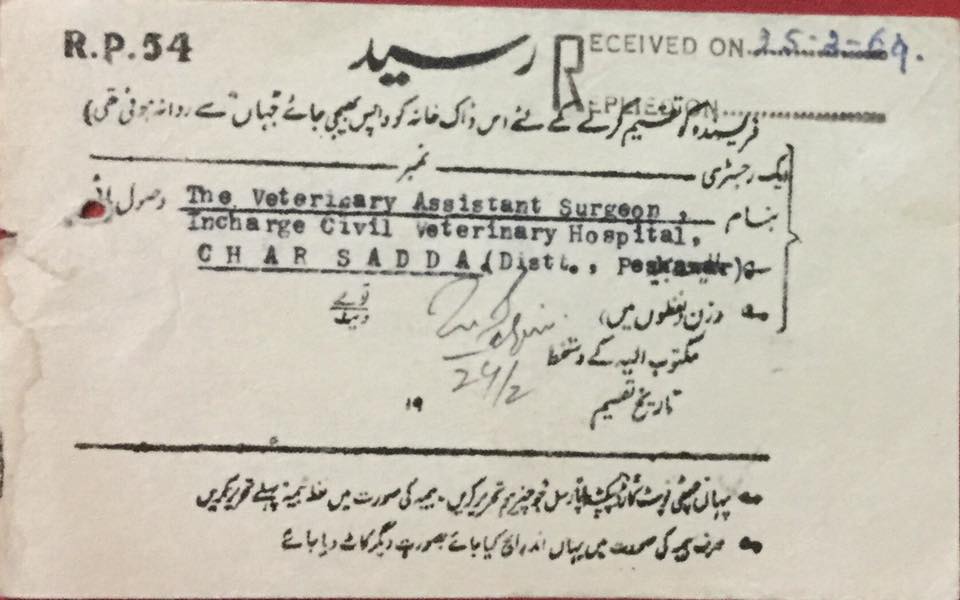 R.P.54
رسید
RECEIVED ON 25-2-69.
REPLIED ON
فریسندہ کو تقسیم کرنے کے لئے اس ڈاک خانہ کو واپس بھیجی جائے جہاں سے روانہ ہوئی تھی)
ایک رجسٹری نمبر
بنام The Veterinary Assistant Surgeon, وصول پائی
Incharge Civil Veterinary Hospital,
CHARSADDA.(Distt., Peshawar)
وزن (لفظوں میں) تولے
مکتوب الیہ کے دستخط
24/2
تاریخ تقسیم ۱۹
یہاں چٹھی پوسٹ کارڈ پیکٹ یا پارسل جو چیز ہو تحریر کریں۔ بیمہ کی صورت میں لفظ بیمہ پہلے تحریر کریں
صرف بیمہ کی صورت میں یہاں اندراج کیا جائے بصورت دیگر کاٹ دیا جائے